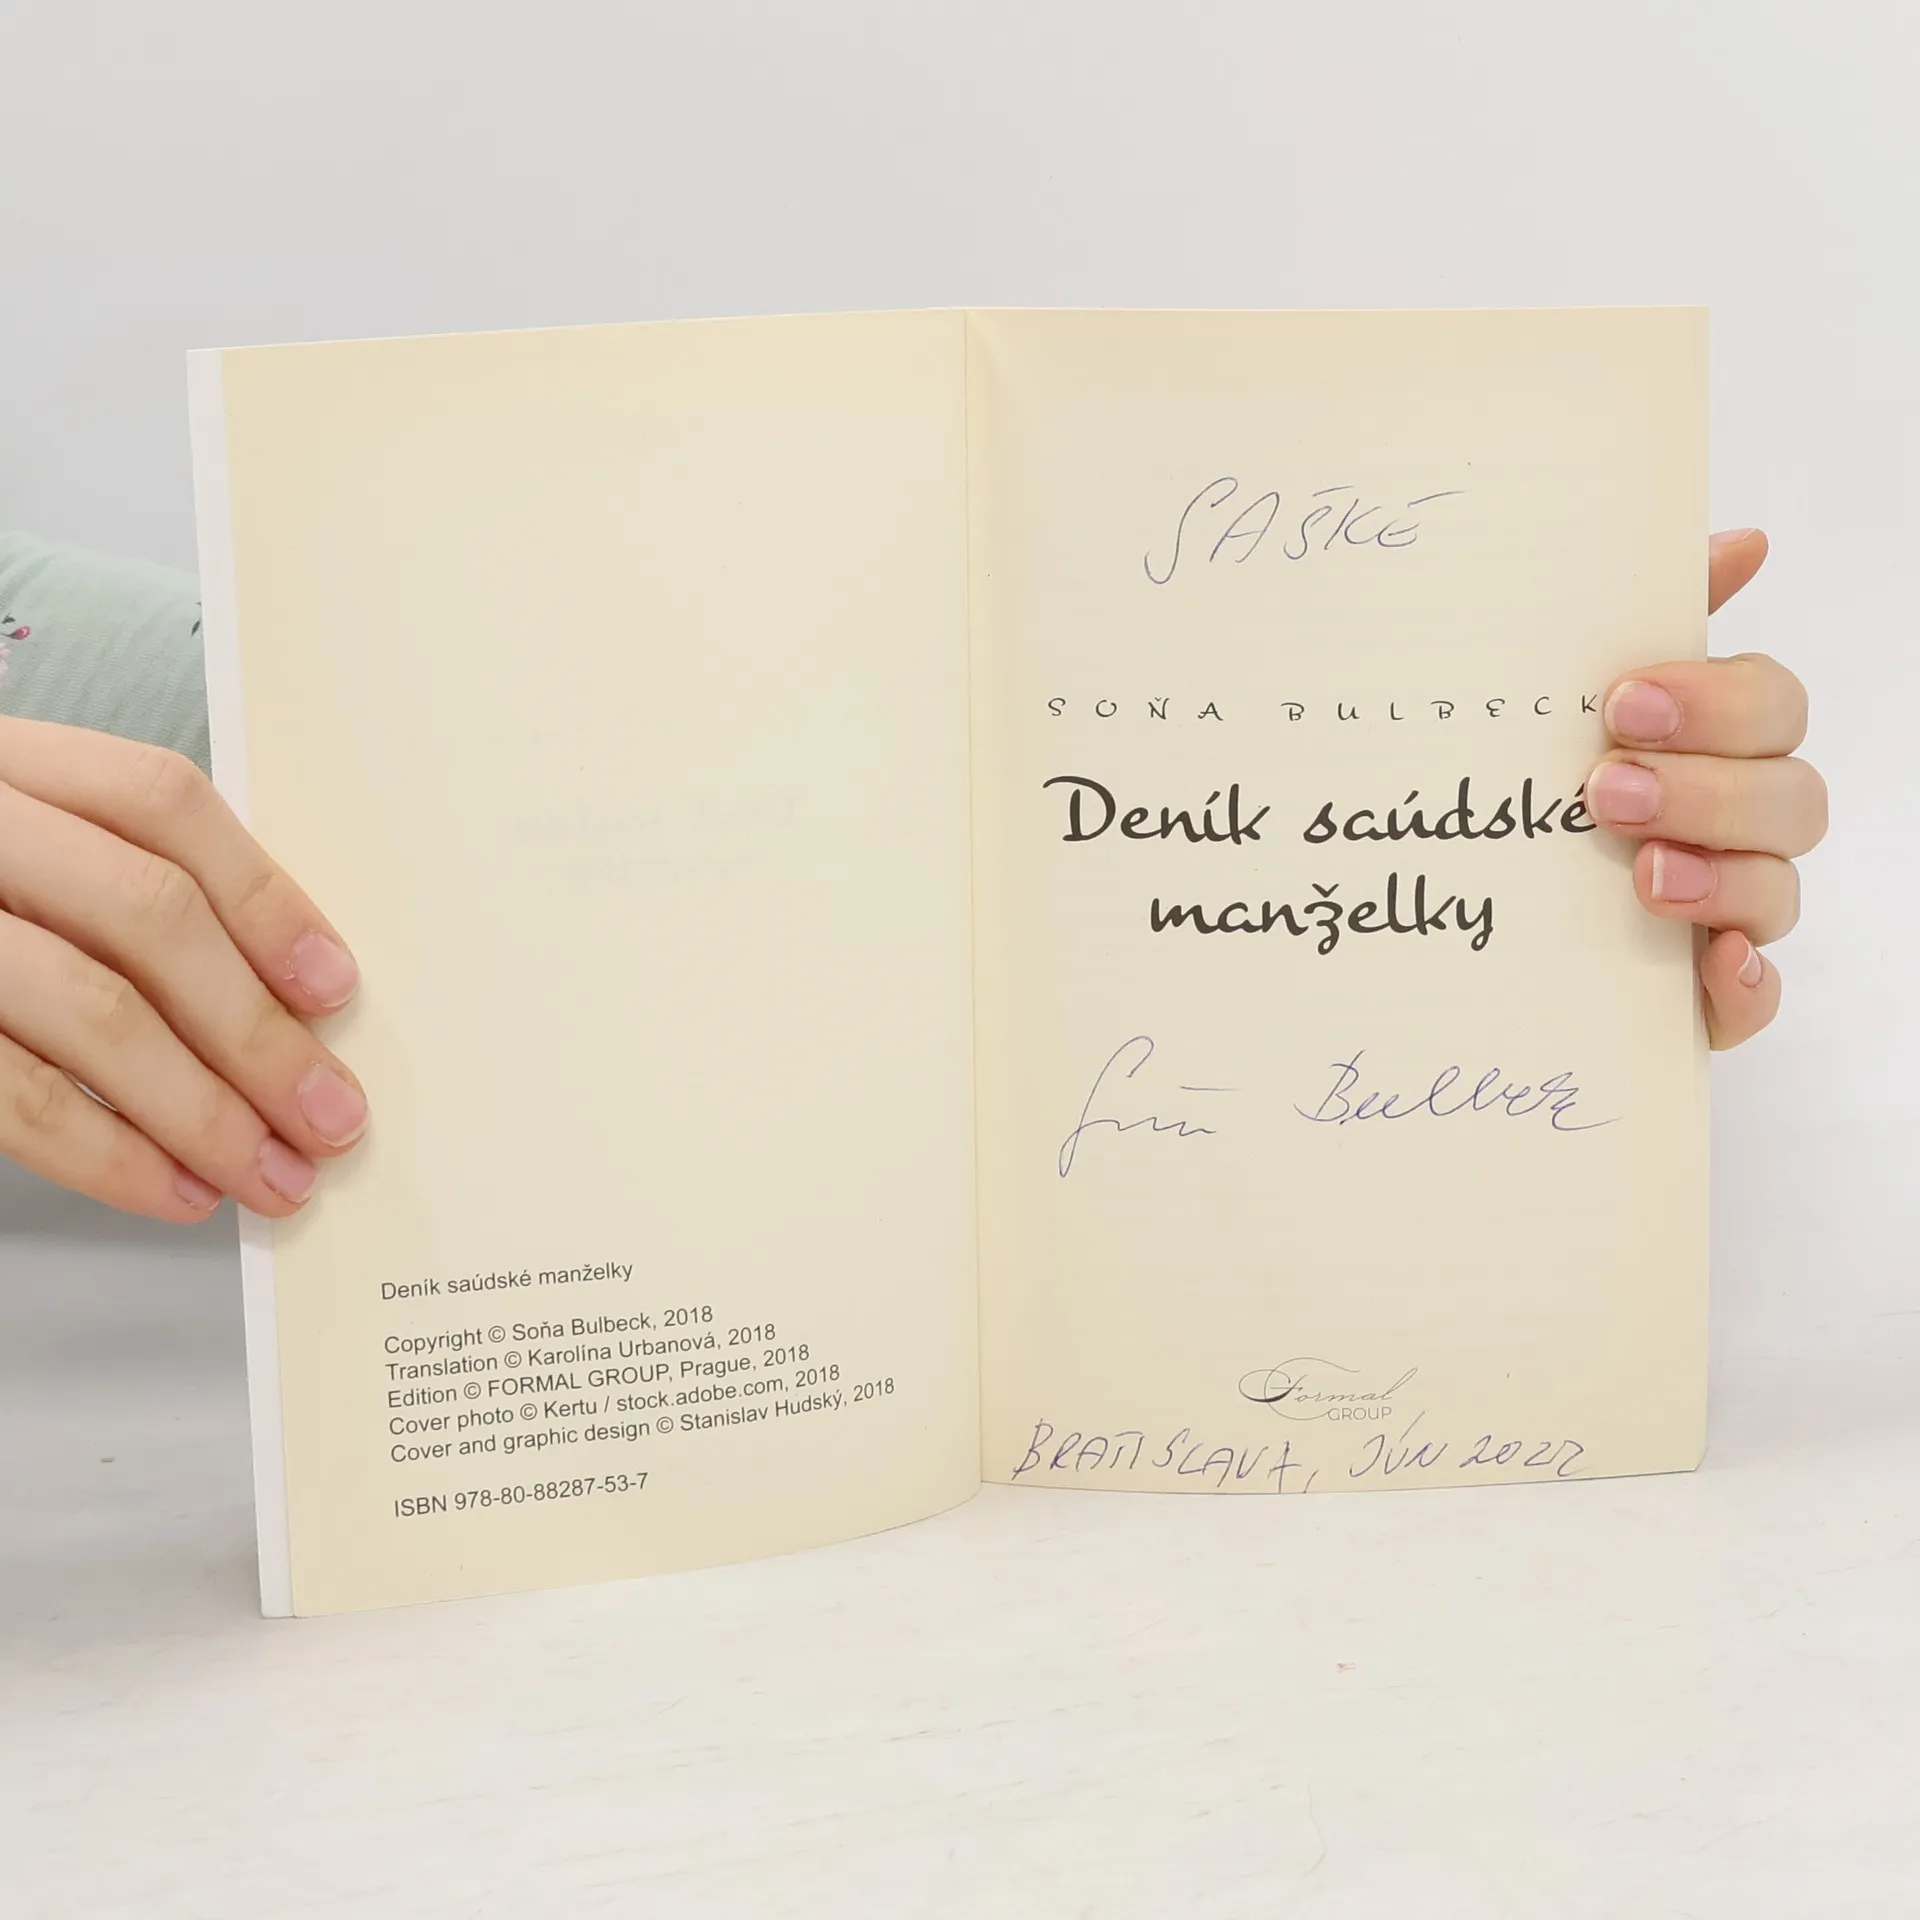 Deník saúdské manželky
Copyright © Soňa Bulbeck, 2018
Translation © Karolína Urbanová, 2018
Edition © FORMAL GROUP, Prague, 2018
Cover photo © Kertu / stock.adobe.com, 2018
Cover and graphic design © Stanislav Hudský, 2018
ISBN 978-80-88287-53-7
SAŠKE
SOŇA BULBECK
Deník saúdské
manželky
Soňa Bulbeck
Formal
GROUP
BRATISLAVA, JÚN 2022